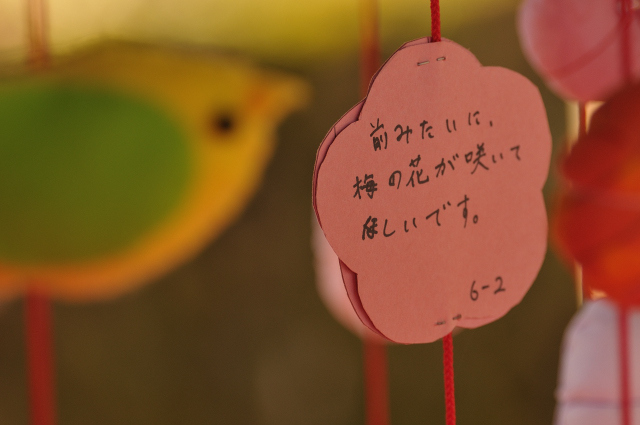 前みたいに、
梅の花が咲いて
ほしいです。
6-2